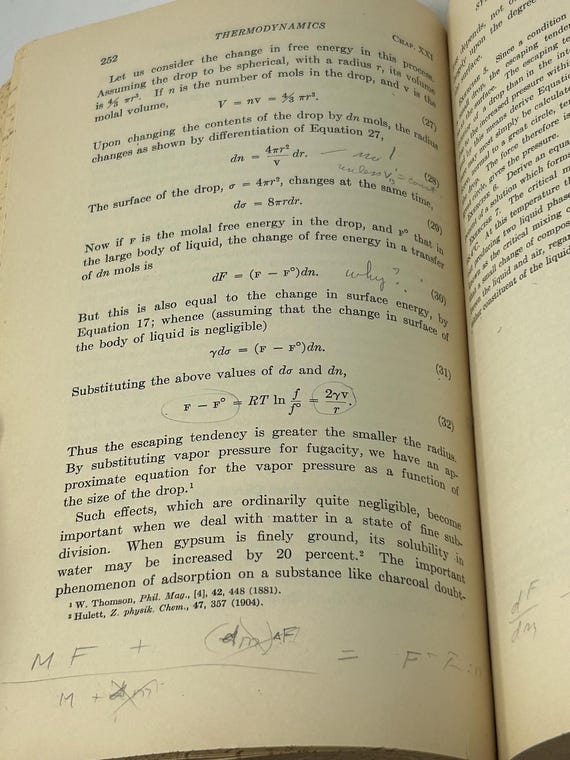 252 THERMODYNAMICS CHAP. XXI
Let us consider the change in free energy in this process.
Assuming the drop to be spherical, with a radius r, its volume
is 4/3 πr³. If n is the number of mols in the drop, and v is the
molal volume,
V = nv = 4/3 πr³. (27)
Upon changing the contents of the drop by dn mols, the radius
changes as shown by differentiation of Equation 27,
dn = 4πr²/v dr. (28)
— no!
unless v
The surface of the drop, σ = 4πr², changes at the same time,
dσ = 8πrdr. (29)
Now if F is the molal free energy in the drop, and F° that in
the large body of liquid, the change of free energy in a transfer
of dn mols is
dF = (F − F°)dn. (30)
why?
But this is also equal to the change in surface energy, by
Equation 17; whence (assuming that the change in surface of
the body of liquid is negligible)
γdσ = (F − F°)dn. (31)
Substituting the above values of dσ and dn,
F − F° = RT ln f/f° = 2γv/r. (32)
Thus the escaping tendency is greater the smaller the radius.
By substituting vapor pressure for fugacity, we have an ap-
proximate equation for the vapor pressure as a function of
the size of the drop.¹
Such effects, which are ordinarily quite negligible, become
important when we deal with matter in a state of fine sub-
division. When gypsum is finely ground, its solubility in
water may be increased by 20 percent.² The important
phenomenon of adsorption on a substance like charcoal doubt-
¹ W. Thomson, Phil. Mag., [4], 42, 448 (1881).
² Hulett, Z. physik. Chem., 47, 357 (1904).
M F +
M +
=
depends, not on
upon the degree
surface.
Since a condition
the escaping tend
surface. The escaping te
drop than in the inte
the increased pressure within
this means derive Equation
most simply be calculated
normal to a great circle, ten
The force therefore is
circle, gives the pressure.
EXERCISE 6. Derive an equa
of a solution which forms
EXERCISE 7. The critical m
this temperature th
producing two liquid phase
as the critical mixing c
a small change of compos
the liquid and air, regar
constituent of the liquid
dF